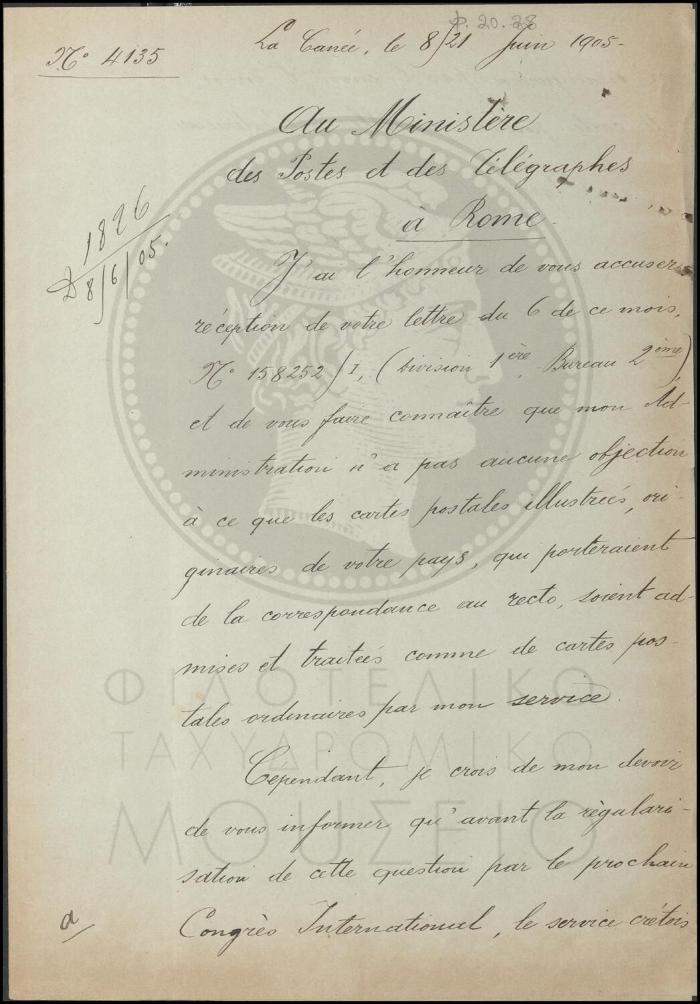 φ. 20.28
Nº 4135
La Canée, le 8/21 Juin 1905-
Au Ministère
des Postes et des Télégraphes
à Rome.
1826
D 8/6/05.
J'ai l'honneur de vous accuser
réception de votre lettre du 6 de ce mois,
Nº 158252/I, (Division 1ère, Bureau 2ème)
et de vous faire connaître que mon Ad-
ministration n'a pas aucune objection
à ce que les cartes postales illustrées, ori-
ginaires de votre pays, qui porteraient
de la correspondance au recto, soient ad-
mises et traitées comme de cartes pos-
tales ordinaires par mon service.
Cependant, je crois de mon devoir
de vous informer qu'avant la règulari-
sation de cette question par le prochain
Congrès International, le service crétois
a
ΦΙΛΟΤΕΛΙΚΟ
ΤΑΧΥΔΡΟΜΙΚΟ
ΜΟΥΣΕΙΟ